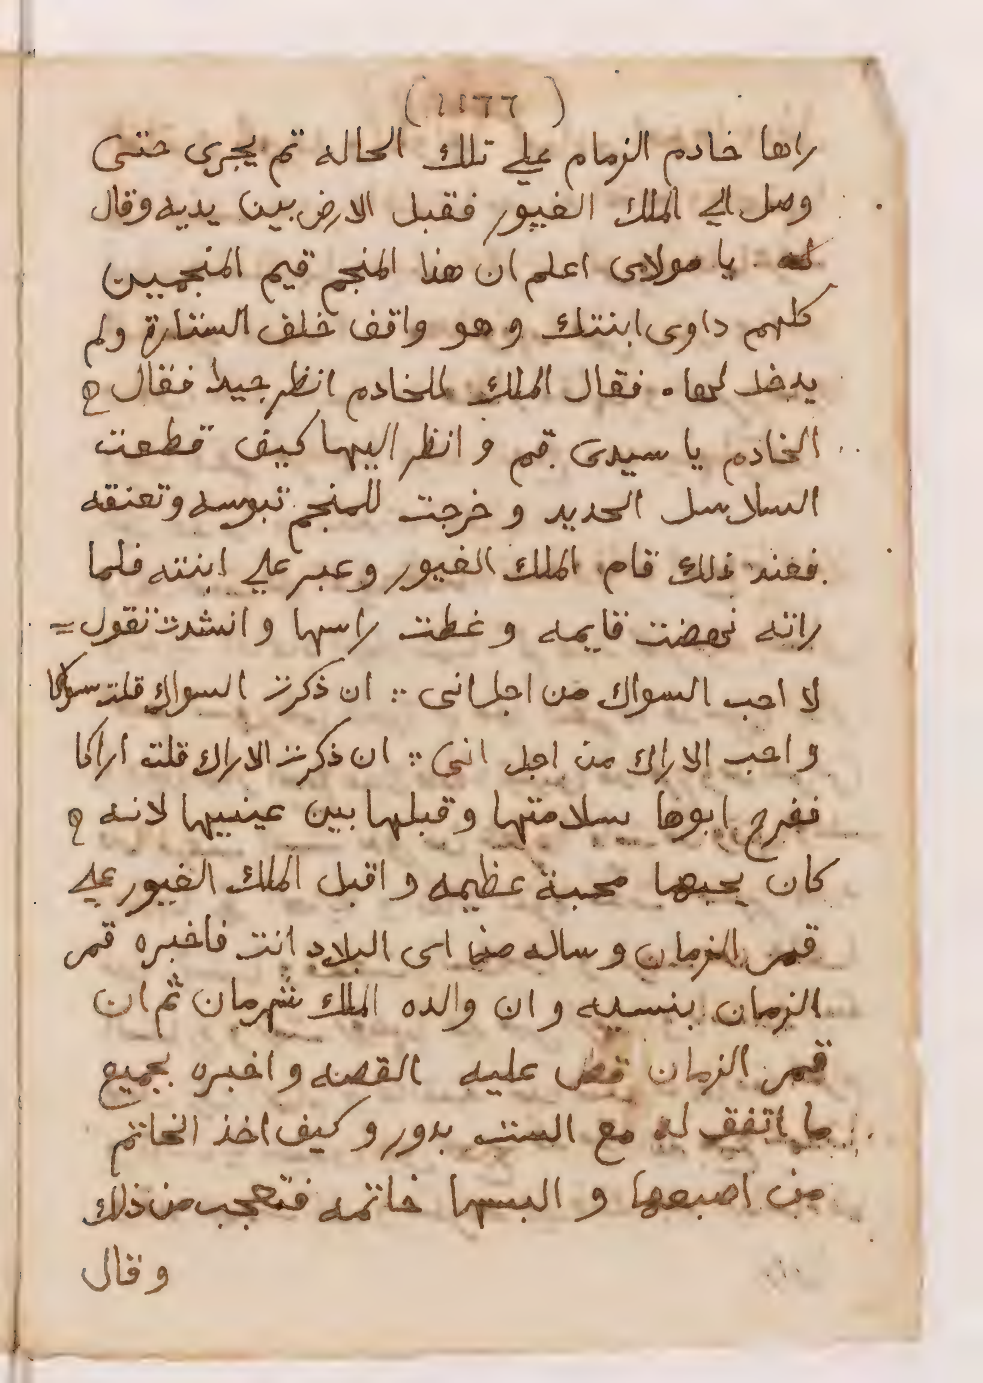 (١١٦٦)
راها خادم الزمام علي تلك الحاله تم يجرى حتى
وصل الي الملك الغيور فقبل الارض بين يديه وقال
له يا مولاى اعلم ان هذا المنجم قيم المنجمين
كلهم داوى ابنتك و هو واقف خلف الستارة ولم
يدخل لها . فقال الملك للخادم انظر جيدا فقال
الخادم يا سيدى قم و انظر اليها كيف قطعت
السلاسل الحديد و خرجت للمنجم تبوسه وتعنقه
فعند ذلك قام الملك الغيور وعبر علي ابنته فلما
راته نهضت قايمه و غطت راسها و انشدت تقول =
لا احب السواك من اجل انى ∴ ان ذكرت السواك قلت سواكا
و احب الاراك من اجل انى ∴ ان ذكرت الاراك قلت اراكا
ففرح ابوها بسلامتها وقبلها بين عينيها لانه
كان يحبها محبة عظيمه و اقبل الملك الغيور علي
قمر الزمان و ساله من اى البلاد انت فاخبره قمر
الزمان بنسبه و ان والده الملك شهرمان ثم ان
قمر الزمان قص عليه القصه و اخبره بجميع
ما اتفق له مع الست بدور و كيف اخذ الخاتم
من اصبعها و البسها خاتمه فتعجب من ذلك
وقال